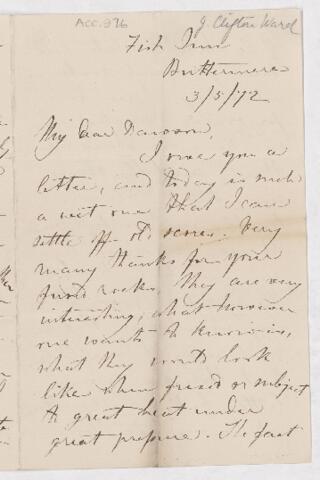 ACC. 976
J Clifton Ward
Fish Inn
Buttermere
3/5/72
My dear Dawson,
I owe you a
letter, and today is such
a wet one that I can
settle off old scores. Very
many thanks for your
fused rocks, they are very
interesting; what however
one wants to know is,
what they would look
like when fused or subject
to great heat under
great pressure. The fact